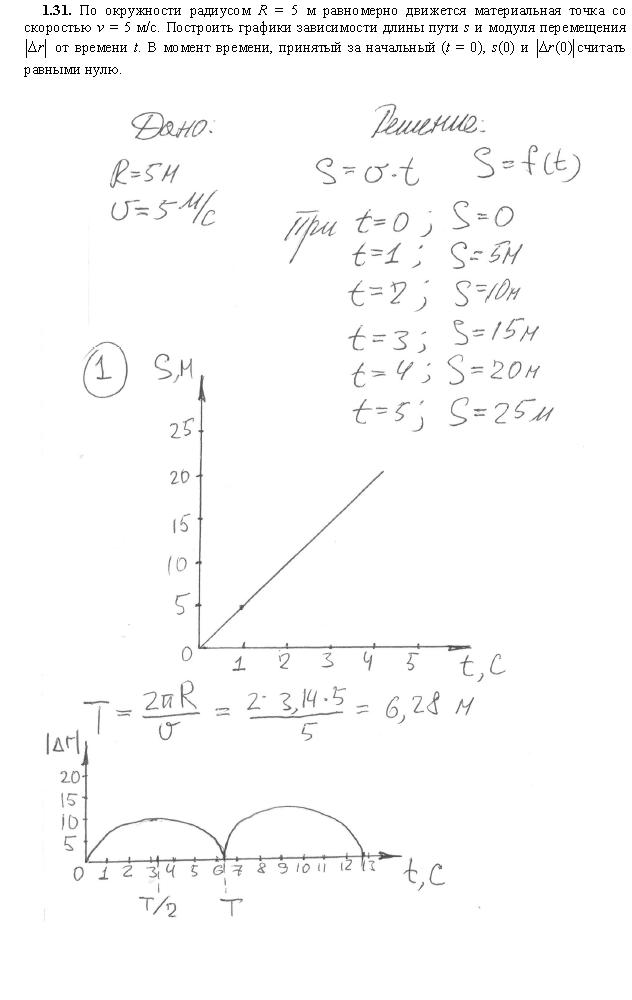 1.31. По окружности радиусом R = 5 м равномерно движется материальная точка со
скоростью v = 5 м/с. Построить графики зависимости длины пути s и модуля перемещения
|Δr| от времени t. В момент времени, принятый за начальный (t = 0), s(0) и |Δr(0)| считать
равными нулю.
Дано: Решение:
R=5м S=υ·t S=f(t)
υ=5 м/с При t=0; S=0
t=1; S=5м
t=2; S=10м
t=3; S=15м
t=4; S=20м
t=5; S=25м
1 S,м
25
20
15
10
5
0 1 2 3 4 5 t,c
T = 2πR/υ = 2·3,14·5/5 = 6,28 м
|Δr|
20
15
10
5
0 1 2 3 4 5 6 7 8 9 10 11 12 13 t,c
T/2 T